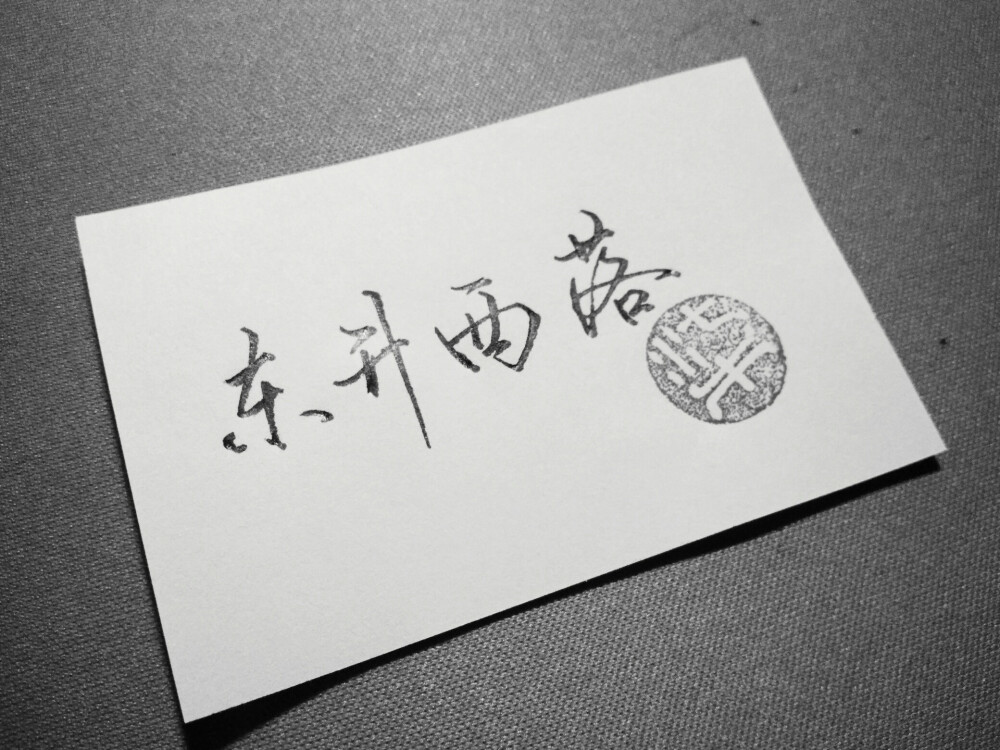 东升西落